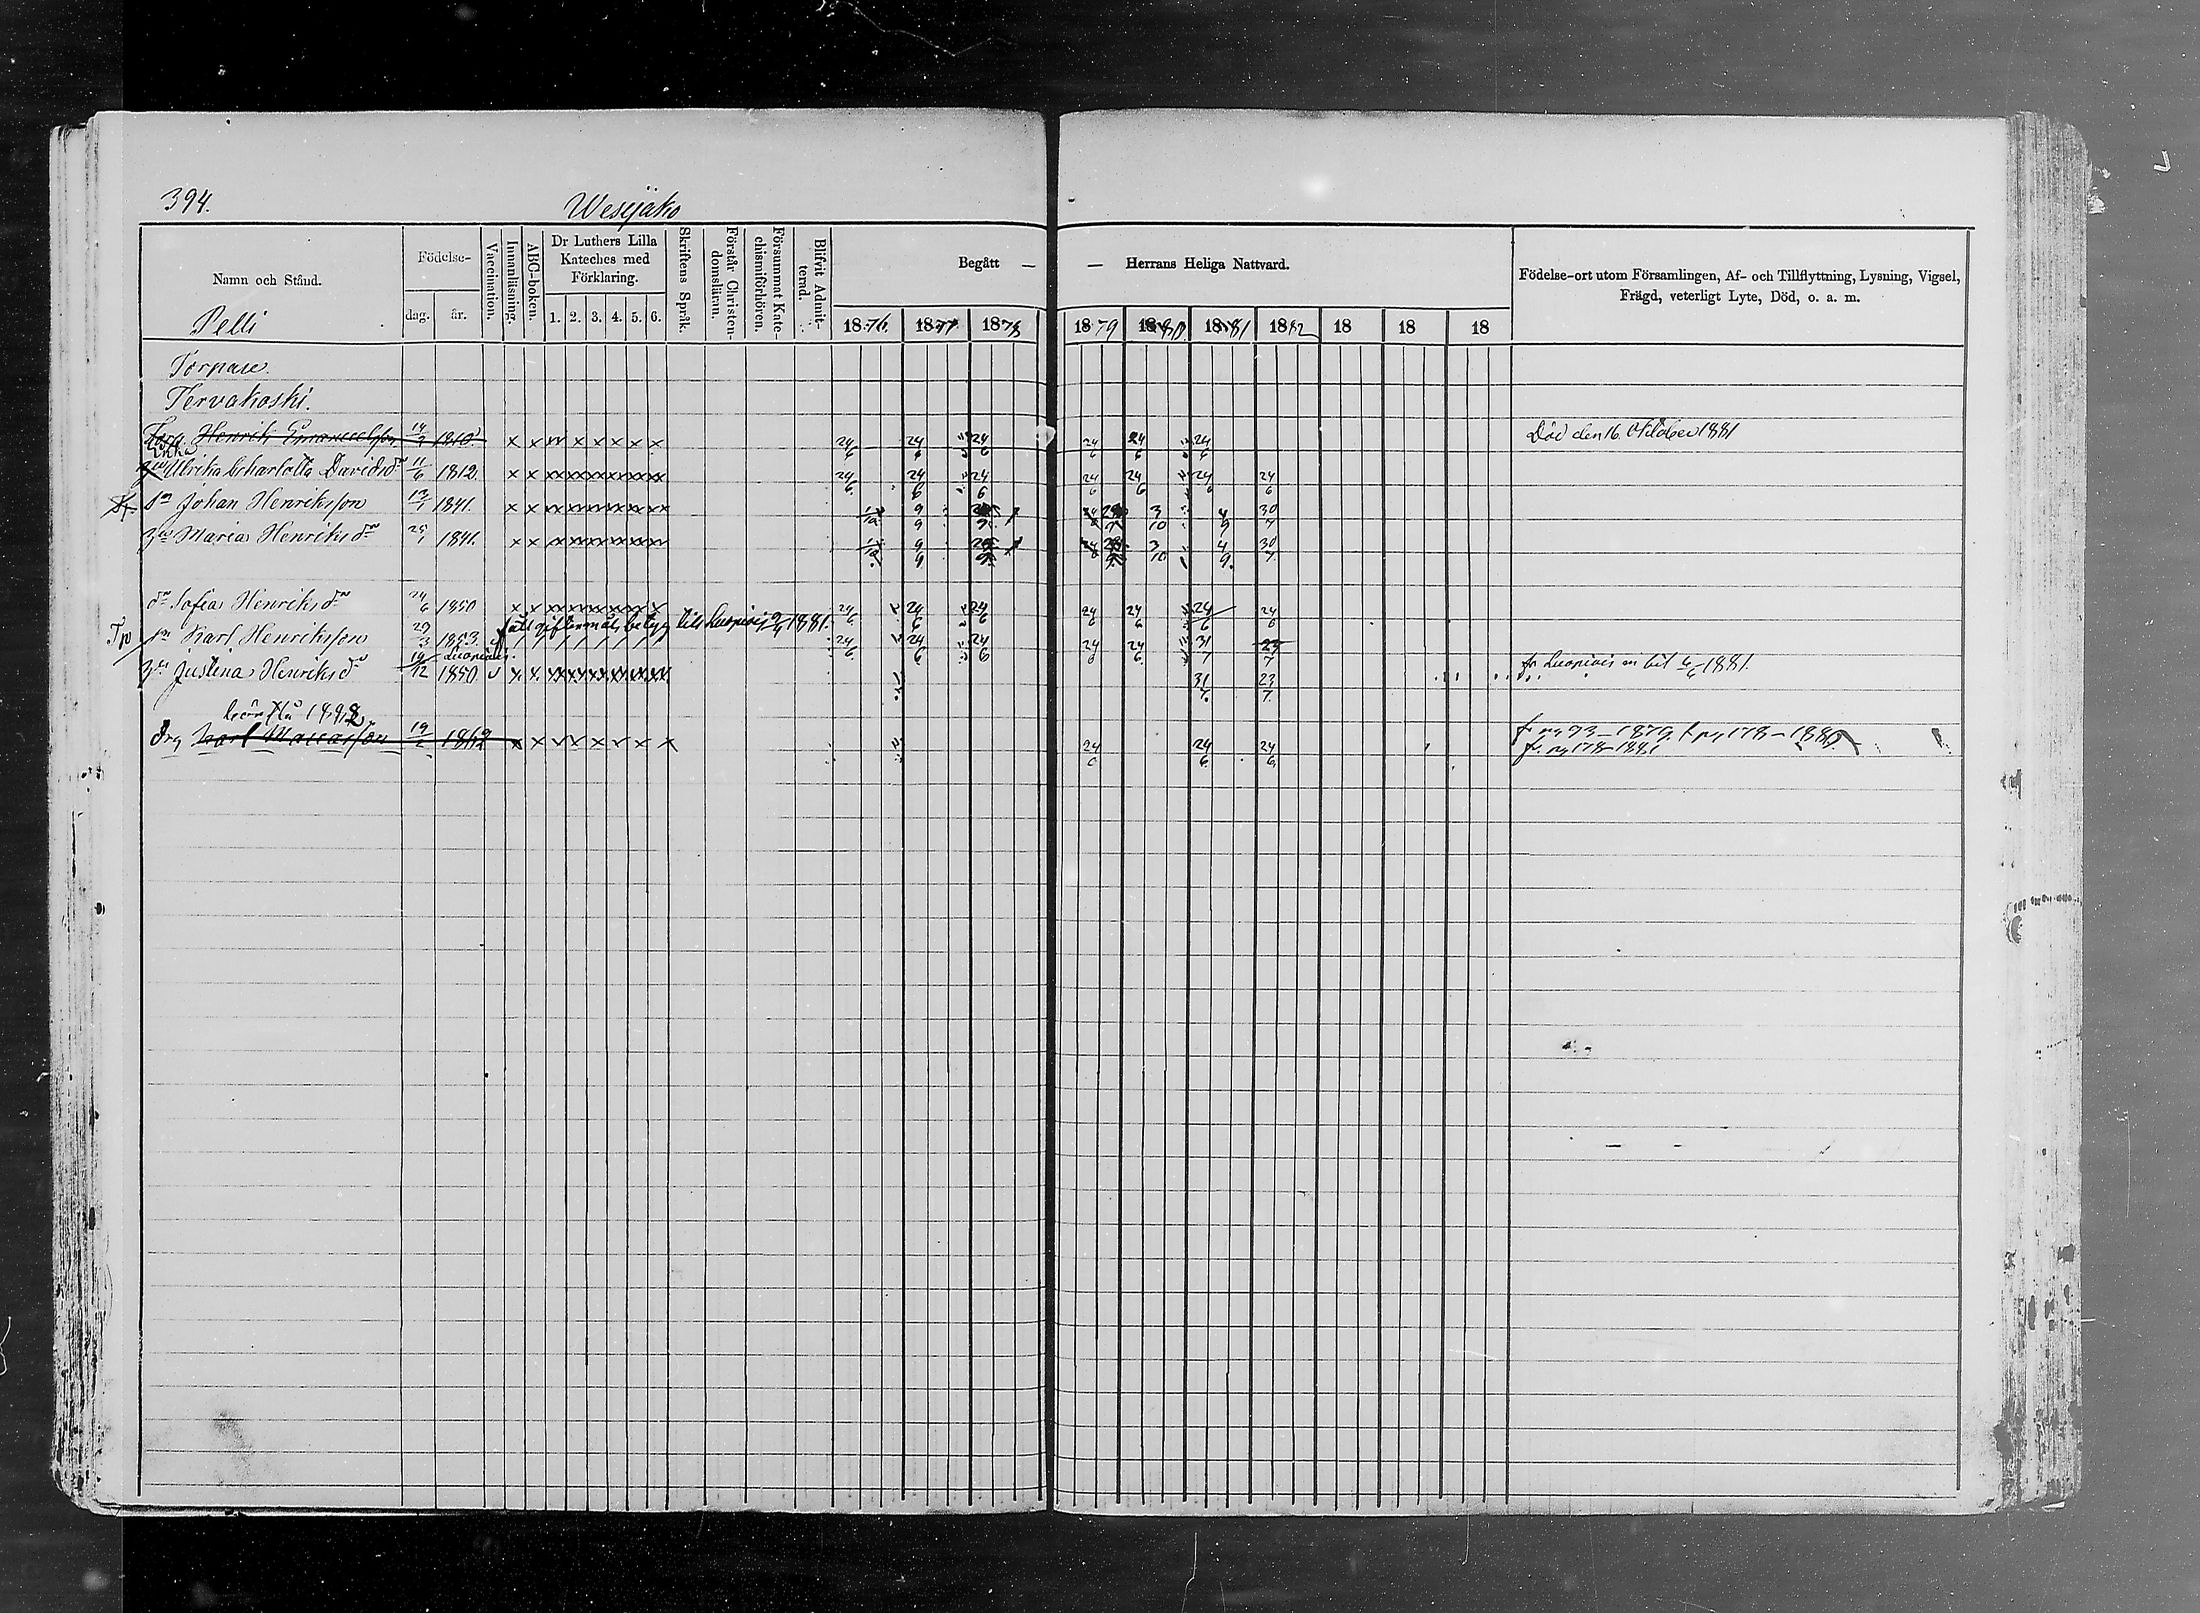 394. Wesijako
Namn och Stånd.
Födelse-
dag. år.
Vaccination.
Innanläsning.
ABC-boken.
Dr Luthers Lilla
Kateches med
Förklaring.
1. 2. 3. 4. 5. 6.
Skriftens Språk.
Förstår Christen-
domsläran.
Försummat Kate-
chismiförhören.
Blifvit Admit-
terad.
Begått — — Herrans Heliga Nattvard.
1876. 1877 1878 1879 1880. 1881 1882 18 18 18
Födelse-ort utom Församlingen, Af- och Tillflyttning, Lysning, Vigsel,
Frägd, veterligt Lyte, Död, o. a. m.
Pelli
Torpare.
Tervakoski.
Henrik Emanuelsson 1810. Död den 16. Oktober 1881
Enka
Ulrika Charlotta Davidsdr 11/6 1812. 24/6 24/6 24/6 24/6 24/6 24 24/6
sn Johan Henriksson 13/7 1841. 9/9 3/10 4/9 30/7
Maria Henriksdr 25/1 1841. 9/9 3/10 4/9 30/7
dr Sofia Henriksdr 24/6 1850 24/6 24/6 24/6 24/6 24/6 24/6 24/6
äktenskaps betyg till Luopiois 1881.
sn Karl Henriksson 29/3 1853. 24/6 24/6 24/6 24/6 24/6 31/7 23/7
Luopiois
Justina Henriksdr 19/12 1850 31/7. 23/7 fr. Luopiois m bet 1881.
Drg Karl 19/2 1862 24/6 24/6 24/6 fr. pg 93 — 1879. t pg 178 — 1880
fr. pg 178 — 1881